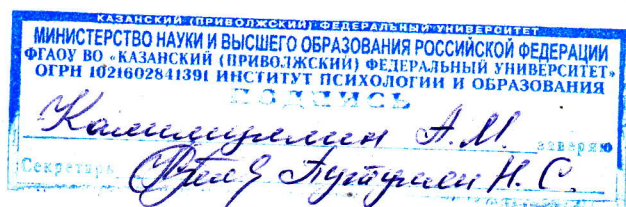 КАЗАНСКИЙ (ПРИВОЛЖСКИЙ) ФЕДЕРАЛЬНЫЙ УНИВЕРСИТЕТ
МИНИСТЕРСТВО НАУКИ И ВЫСШЕГО ОБРАЗОВАНИЯ РОССИЙСКОЙ ФЕДЕРАЦИИ
ФГАОУ ВО «КАЗАНСКИЙ (ПРИВОЛЖСКИЙ) ФЕДЕРАЛЬНЫЙ УНИВЕРСИТЕТ»
ОГРН 1021602841391 ИНСТИТУТ ПСИХОЛОГИИ И ОБРАЗОВАНИЯ
ПОДПИСЬ
А.М. заверяю
Секретарь Н.С.